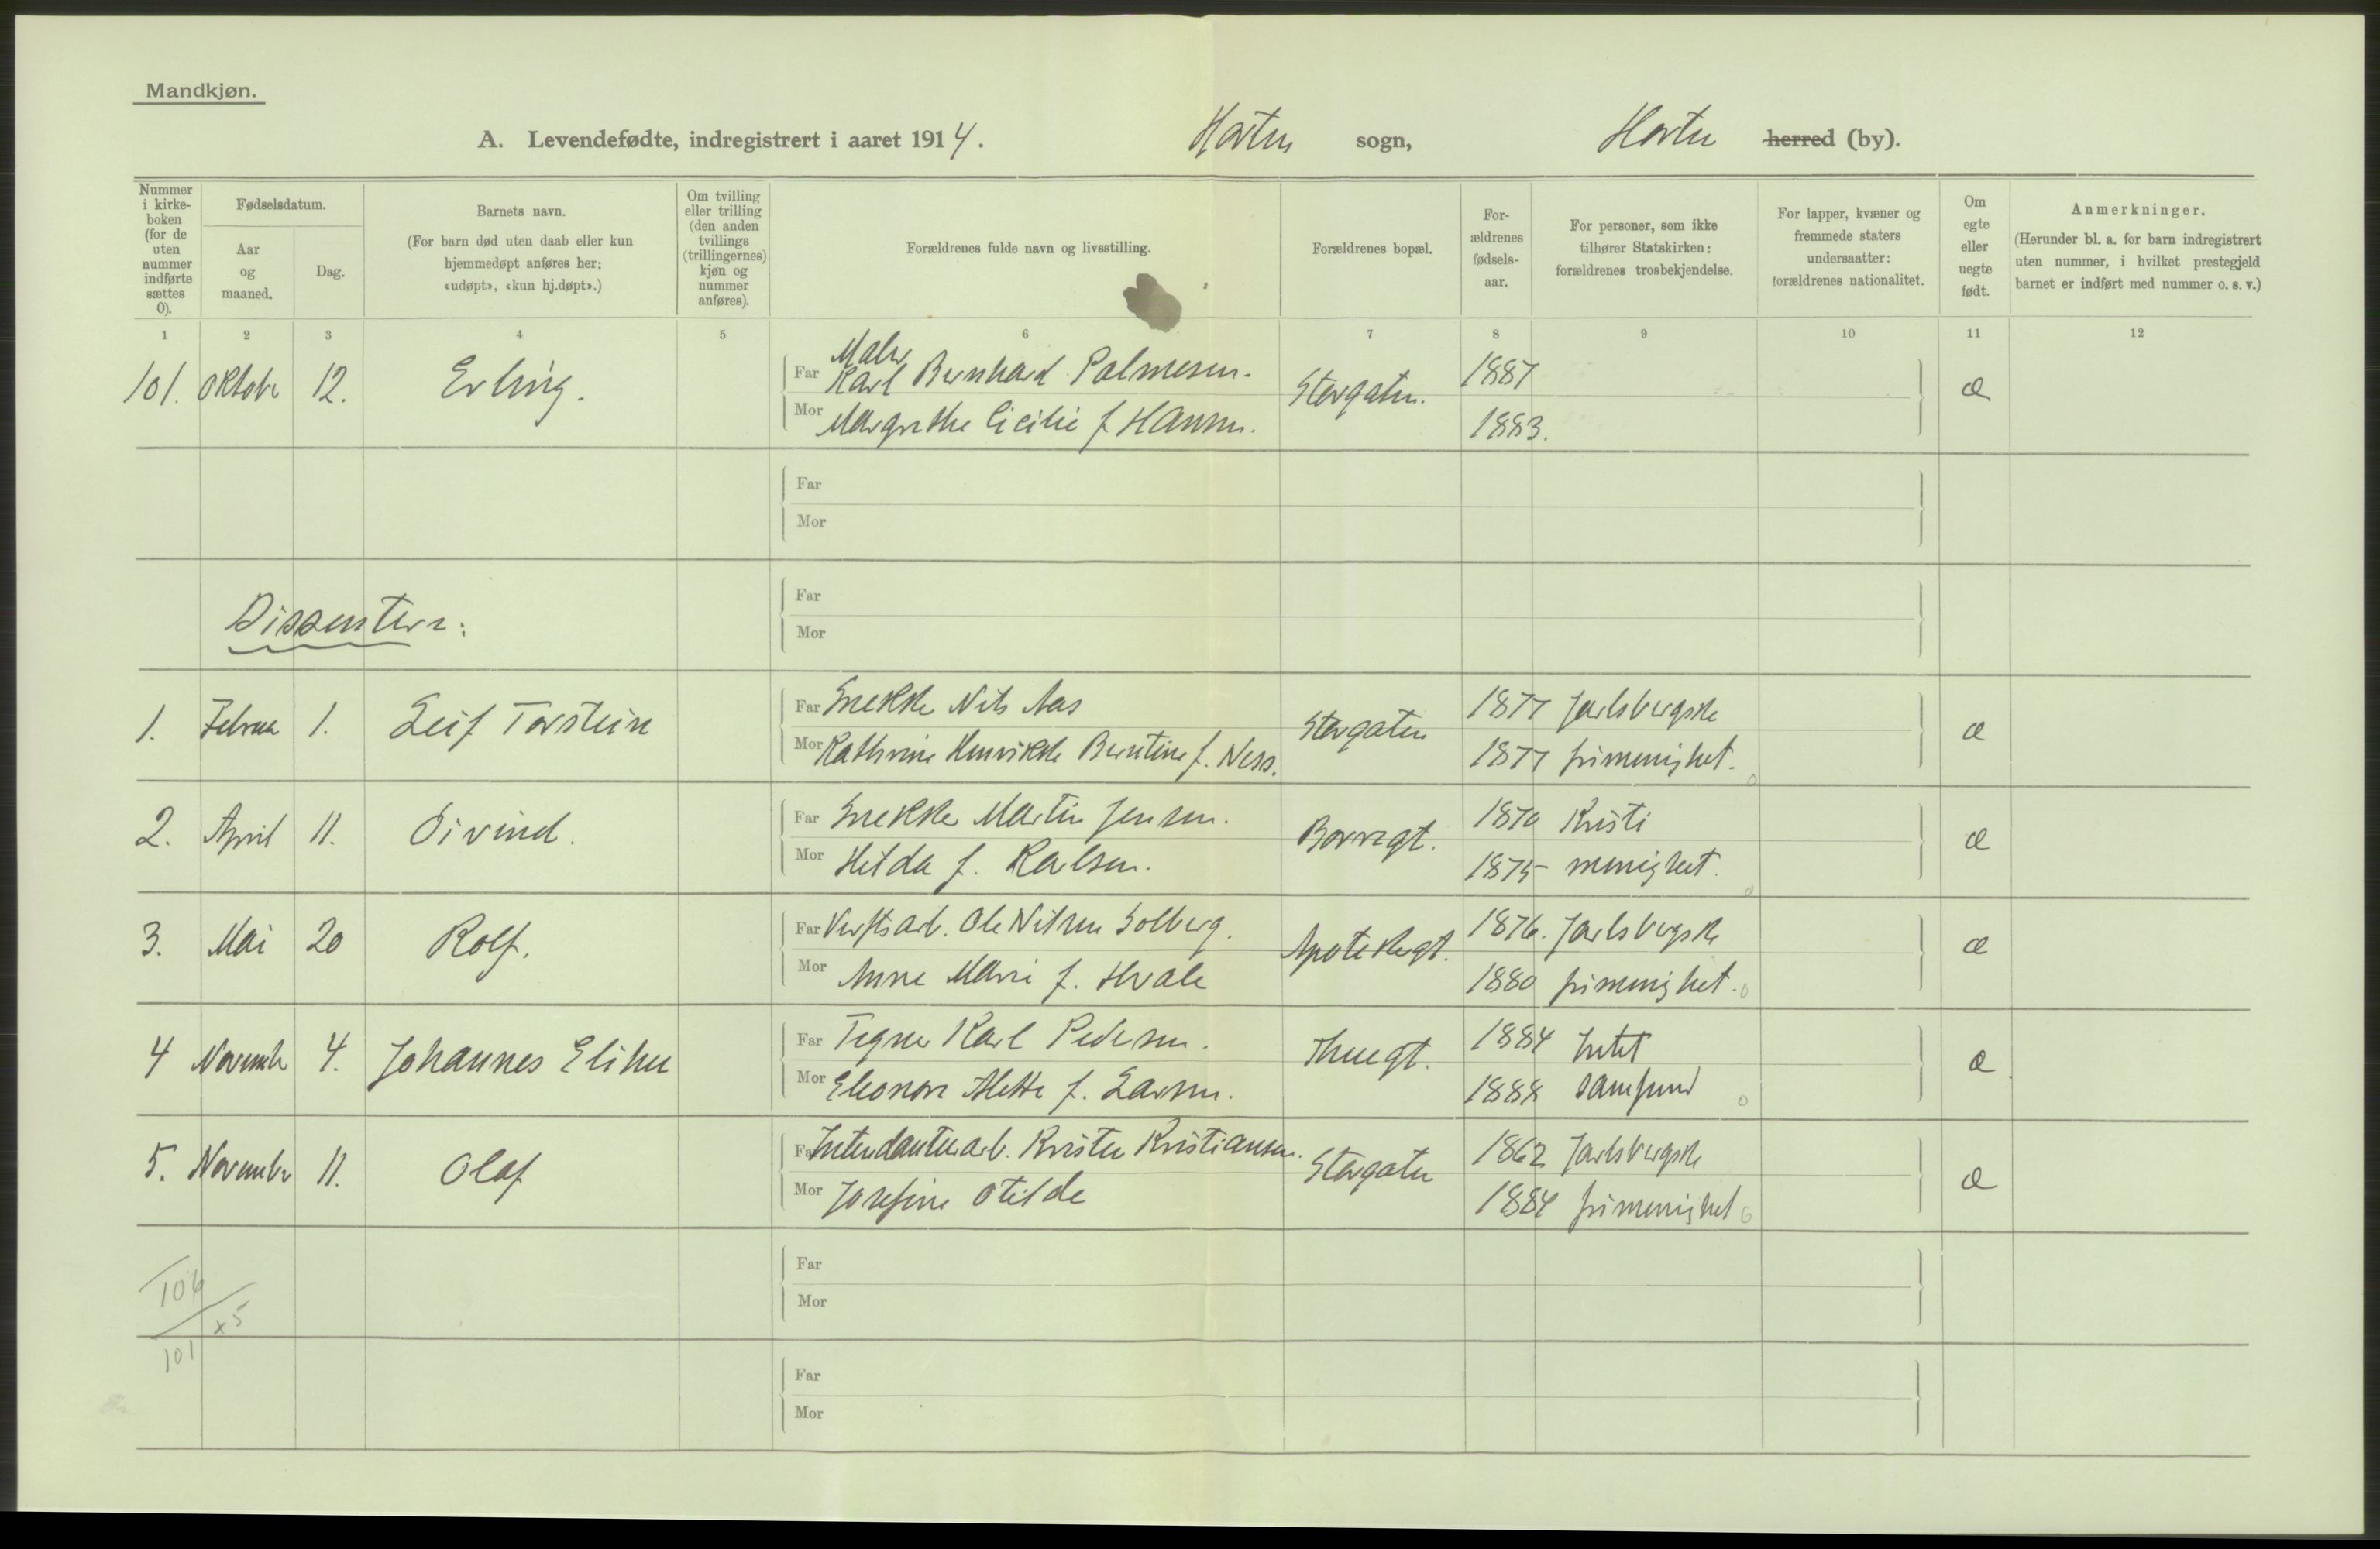 Mandkjøn.
A. Levendefødte, indregistrert i aaret 1914. Horten sogn, Horten herred (by).
Nummer i kirke-boken (for de uten nummer indførte sættes 0).
Fødselsdatum.
Aar og maaned.
Dag.
Barnets navn.
(For barn død uten daab eller kun hjemmedøpt anføres her: «udøpt», «kun hj.døpt».)
Om tvilling eller trilling (den anden tvillings (trillingernes) kjøn og nummer anføres).
Forældrenes fulde navn og livsstilling.
Forældrenes bopæl.
For-ældrenes fødsels-aar.
For personer, som ikke tilhører Statskirken: forældrenes trosbekjendelse.
For lapper, kvæner og fremmede staters undersaatter: forældrenes nationalitet.
Om egte eller uegte født.
Anmerkninger.
(Herunder bl. a. for barn indregistrert uten nummer, i hvilket prestegjeld barnet er indført med nummer o. s. v.)
1 2 3 4 5 6 7 8 9 10 11 12
101. Oktober 12. Erling. Far Maler Karl Bernhard Palmesen. Storgaten. 1887 æ
Mor Margrethe Cicilie f. Hansen. 1883.
Far
Mor
Dissentere:
Far
Mor
1. Februar 1. Leif Torstein Far Snekker Nils Aas Storgaten 1877 Jarlsbergske æ
Mor Kathrine Henrikke Berntine f. Ness. 1877 frimenighet.
2. April 11. Öivind. Far Snekker Martin Jensen. Borregt. 1870 Kristi æ
Mor Hilda f. Karlsen. 1875 menighet.
3. Mai 20 Rolf. Far Verftsarb. Ole Nilsen Solberg. Apotekergt. 1876. Jarlsbergske æ
Mor Anne Marie f. Hvale 1880 frimenighet.
4 November 4. Johannes Elihu Far Tegner Karl Pedersen. Thuegt. 1884 Intet æ
Mor Eleonore Alette f. Larsen. 1888 samfund
5. November 11. Olaf Far Intendanturarb. Krister Kristiansen. Storgaten 1862 Jarlsbergske æ
Mor Josefine Otilde 1884 frimenighet
106
x5
101
Far
Mor
Far
Mor